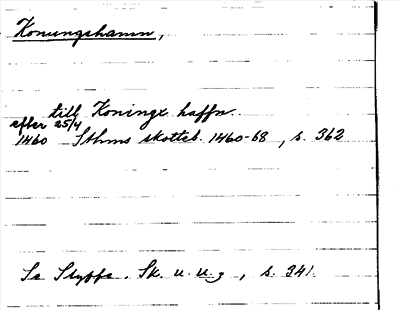 Konungshamn,
till Koninge haffn.
efter 25/4
1460 Sthms skotteb. 1460-68, s. 362
Se Styffe. Sk. u. u. 3, s. 341.